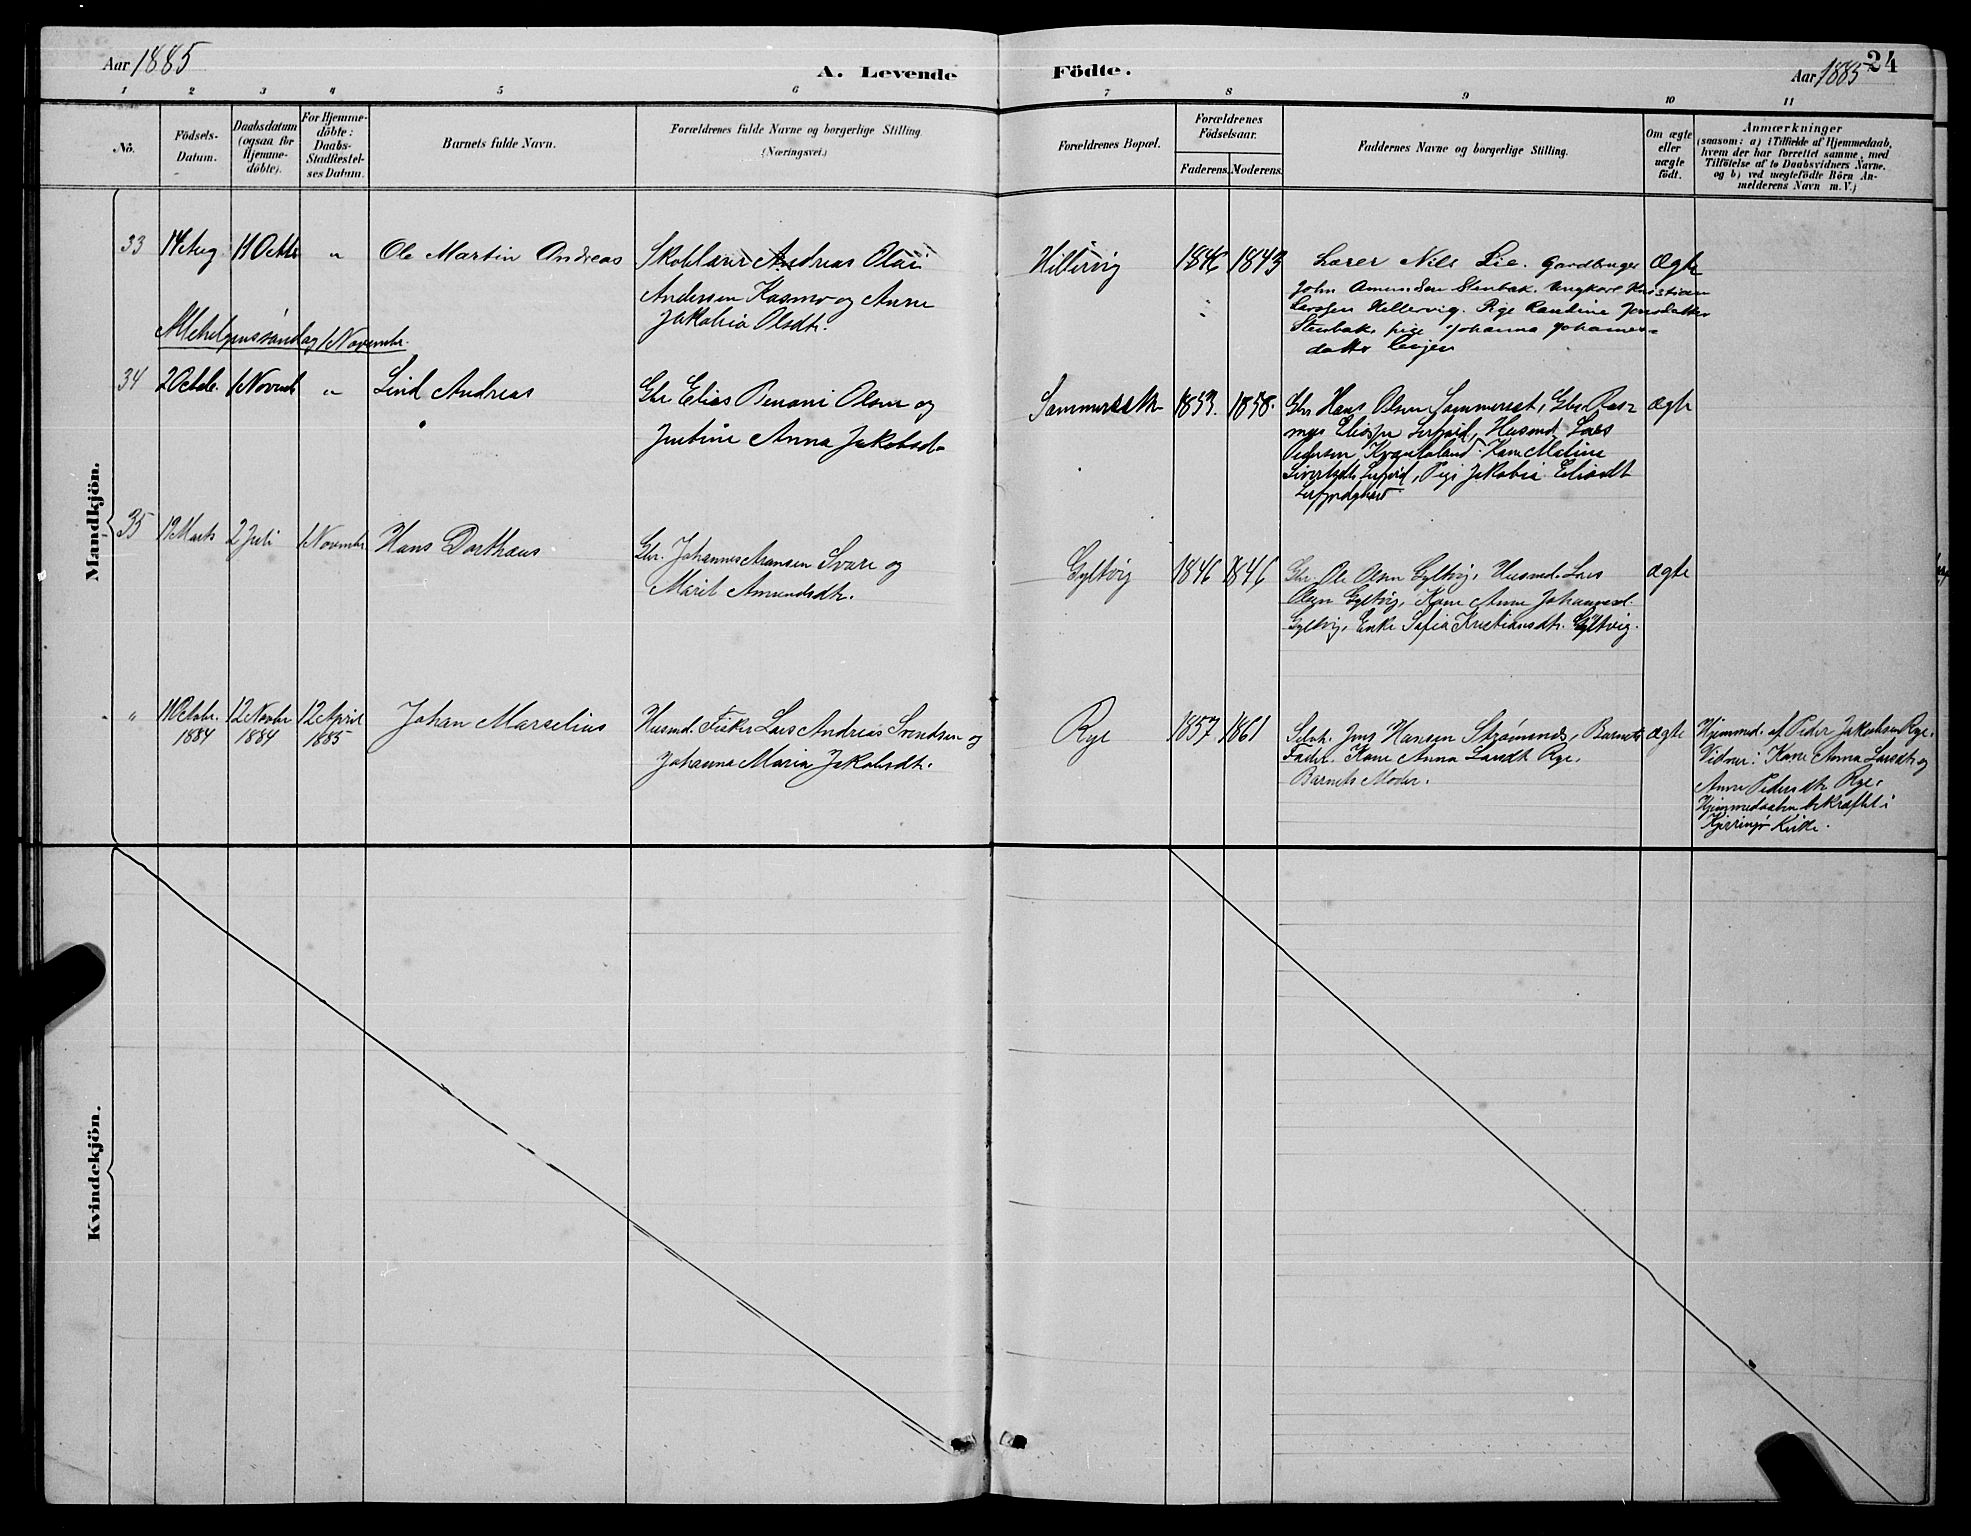 Aar 1885
A. Levende
Födte.
Aar 1885
24
1 2 3 4 5 6 7 8 9 10 11
No.
Födsels-
Datum.
Daabsdatum
(ogsaa for
Hjemme-
döbte).
For Hjemme-
döbte:
Daabs-
Stadfæstel-
ses Datum.
Barnets fulde Navn.
Forældrenes fulde Navne og borgerlige Stilling.
(Næringsvei.)
Forældrenes Bopæl.
Forældrenes
Födselsaar.
Faderens. Moderens.
Faddernes Navne og borgerlige Stilling.
Om ægte
eller
uægte
födt.
Anmærkninger
(saasom: a) i Tilfælde af Hjemmedaab,
hvem der har forrettet samme, med
Tilföielse af to Daabsvidners Navne.
og b) ved uægtefödte Börn An-
melderens Navn m. V.)
Mandkjön.
33 14 Aug 11 Octbr " Ole Martin Andreas
Andreas Olai
Andersen Kasmo og Anne
Jakobia Olsdtr.
Hillervig 1846 1843
Lærer Nils Lie. Gaardbruger
John Amundsen Stenbak. Ungkarl Kristian
Larssen Hellervig. Pige Jensdatter
Stenbak, pige Johanna Johannes-
datter
Ægte
Allehelgenssöndag 1 Novembr.
34 2 Octbr. 1 Novemb " Lind Andreas
Gbr Elias Benoni Olsen og
Justine Anna Jakobsd
Sammerseth 1853. 1858.
Gbr Hans Olsen Sommerset, Gbr. Ras-
mus Husmd Lars
Pedersen Kone Maline
Pige Jakobia Eliasdt
ægte
35 19 Marts 2 Juli 1 Novembr Hans Dorthæus
Gbr. Johannes Aransen Svare og
Marit Amundsdtr.
Gyltvig 1846 1846
Gbr Ole Olsen Gyltvig, Husmd. Lars
Olsen Gyltvig, Kone Anne Johannesd.
Gyltvig, Enke Sofia Kristiansdtr. Gyltvig.
ægte
" 11 Octobr. 12 Novbr 12 April Johan Marselius
1884 1884 1885
Husmd. Fisker Lars Andreas Svendsen og
Johanna Maria Jakobsdtr.
Rye 1857. 1861
Selvh. Jens Hansen Strømsnes, Barnets
Fader. Kone Anna Larsdt Rye.
Barnets Moder.
ægte
Hjemmed. af Peder Jakobsen Rye.
Vidner: Kone Anna Larsdtr og
Anne Pedersdtr Rye.
Hjemmedaaben bekræftet i
Kjerringø Kirke.
Kvindekjön.